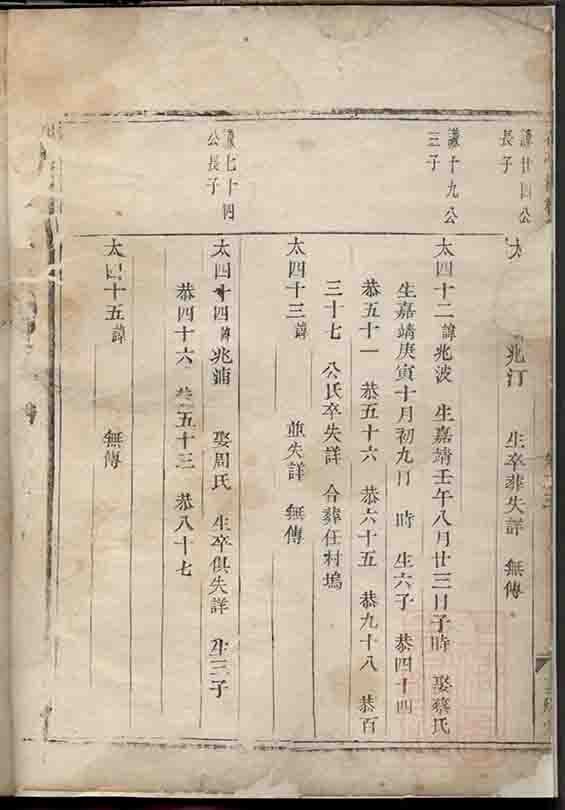 謙廿四公
長子
兆汀 生卒葬失詳 無傳
謙十九公
三子
太四十二 諱兆波 生嘉靖壬午八月廿三日子時 娶蔡氏
生嘉靖庚寅十月初九日 時 生六子 恭四十四
恭五十一 恭五十六 恭六十五 恭九十八 恭百
三十七 公氏卒失詳 合葬任村塢
太四十三 諱 並失詳 無傳
謙七十四
公長子
太四十四 諱兆浦 娶周氏 生卒俱失詳 生三子
恭四十六 恭五十三 恭八十七
太四十五 諱 無傳